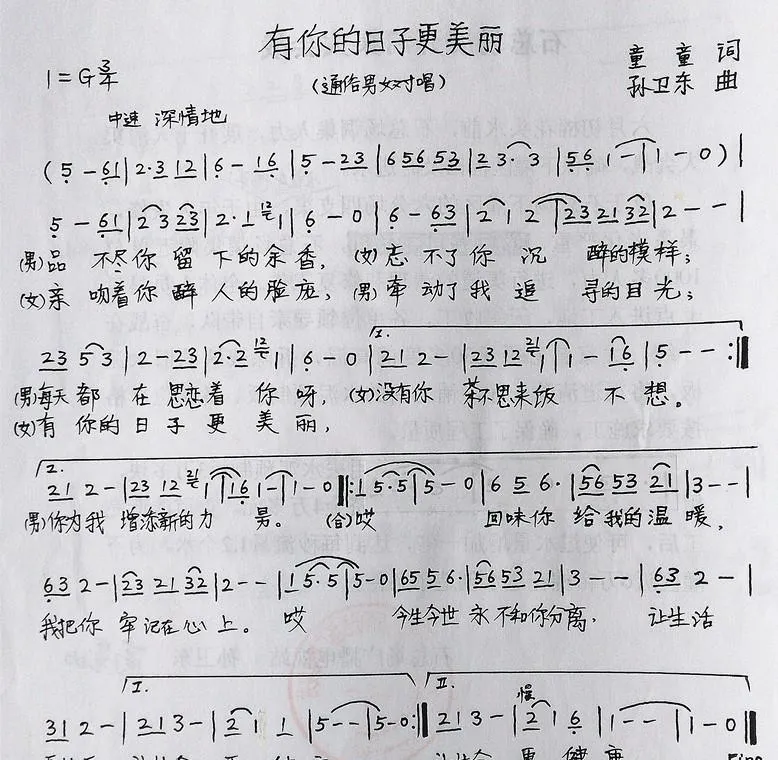 有你的日子更美丽
(通俗男女对唱)
童童 词
孙卫东 曲
1=G 3/4
中速 深情地
(5 - 61|2·3 12|6 - 16|5 - 23|656 53|2 3· 3|56 1 - |1 - 0)|
5 - 61|2 3 23|2·1 12 1|6 - 0|6 - 63|2 1 2|23 21 32|2 - - |
(男)品 不尽你 留 下的余香, (女)忘 不了你 沉 醉的模样;
(女)亲 吻着你 醉 人的脸庞; (男)牵 动了我 追 寻的目光;
I.
23 5 3|2 - 23|2·2 12|6 - 0|21 2 - |23 12 21 1|1 - 16|5 - - :||
(男)每天 都 在 思恋着 你 呀, (女)没有你 茶不思来饭 不 想。
(女)有 你的 日 子 更 美 丽,
2.
21 2 - |23 12 21 1|16 1 - |1 - 0||:1 5·5|5 - 0|6 5 6·|56 53 21|3 - - |
(男)你为我 增添新的力 男。 (合)哎 回味你 给我的温 暖,
63 2 - |23 21 32|2 - - |1 5·5|5 - 0|65 5 6·|56 53 21|3 - - |63 2 - |
我把你 牢记在心 上。 哎 今生今世 永不和你分离, 让生活
I. II.
慢
31 2 - |21 3 - |2 1 1|5 - - |5 - 0:||21 3 - |2 1 6|1 - - |1 - 0||
更 健 康
Fine